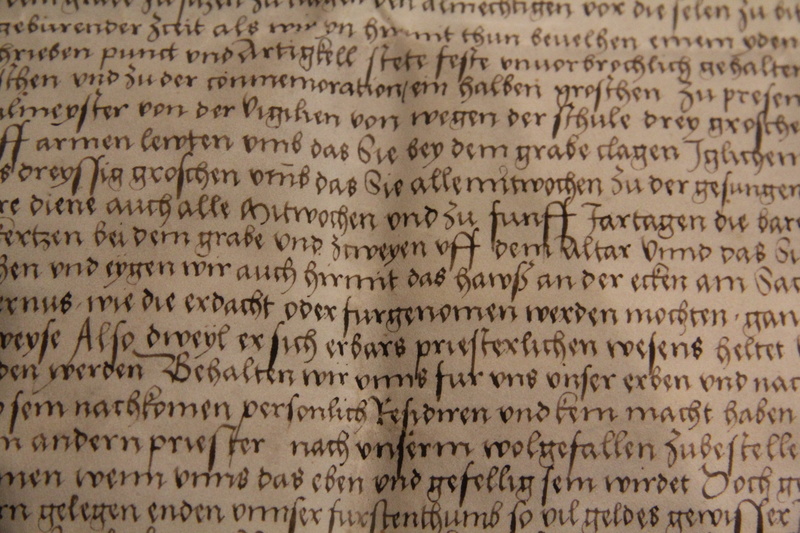 almechtigen vor die selen zu
geburender Zceit als wir yn hirmit thun bevelhen einem yden
punct vnd Artigkell stete feste vnuorbrochlich gehalten
vnd zu der conmemoration ein halben groschen Zu presen
von der Vigilien von wegen der schule drey grosche
ff armen lewten vmb das Sie bey dem grabe clagen Iglichen
s dreyssig groschen vmb das Sie alle mitwochen Zu der gesungen
re diene auch alle Mitwochen vnd Zu funff Jartagen die
kertzen bei dem grabe vnd Zcweyen vff dem Altar Vnnd das
hen vnd eygen wir auch hirmit das hawß an der ecken am
ernus wie die erdacht oder furgenomen werden mochten gan
weyse Also dweyl er sich erbars priesterlichen wesens heltet
den werden Behalten wir vnns fur vns vnser erben vnd nac
sein nachkomen personlich Residiren vnd kein macht haben
n andern priester nach vnserm wolgefallen Zubestelle
men wenn vnns das eben vnd gefellig sein wirdet Doch
rn gelegen enden vnnser furstenthumb so vil geldes gewisser